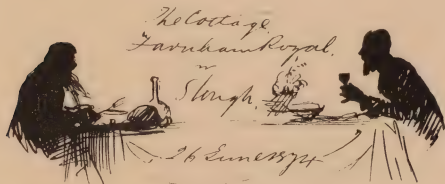 The Cottage,
Farnham Royal.
nr
Slough
26 June 1874